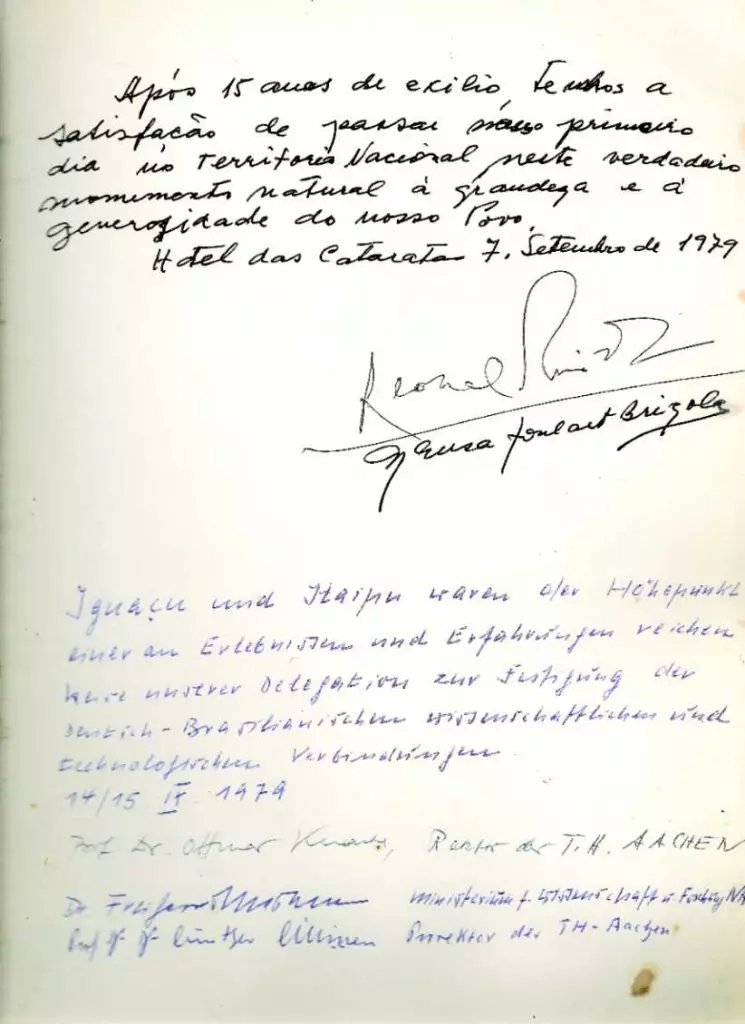 Após 15 anos de exilio, temos a
satisfação de passar nosso primeiro
dia no Território Nacional neste verdadeiro
monumento natural à grandeza e à
generosidade do nosso Povo.
Hotel das Cataratas 7. Setembro de 1979
Leonel Brizola
Neusa Goulart Brizola
Iguaçu und Itaipu waren der Höhepunkt
einer an Erlebnissen und Erfahrungen reichen
Reise unserer Delegation zur Festigung der
Deutsch-Brasilianischen wissenschaftlichen und
technologischen Verbindungen
14/15 IX 1979
Prof. Dr. Ottmar Knacke, Rektor der T.H. AACHEN
Dr. Ministerium f. Wissenschaft u. Forschung
Prof Dr Dr Günther Prorektor der TH-Aachen